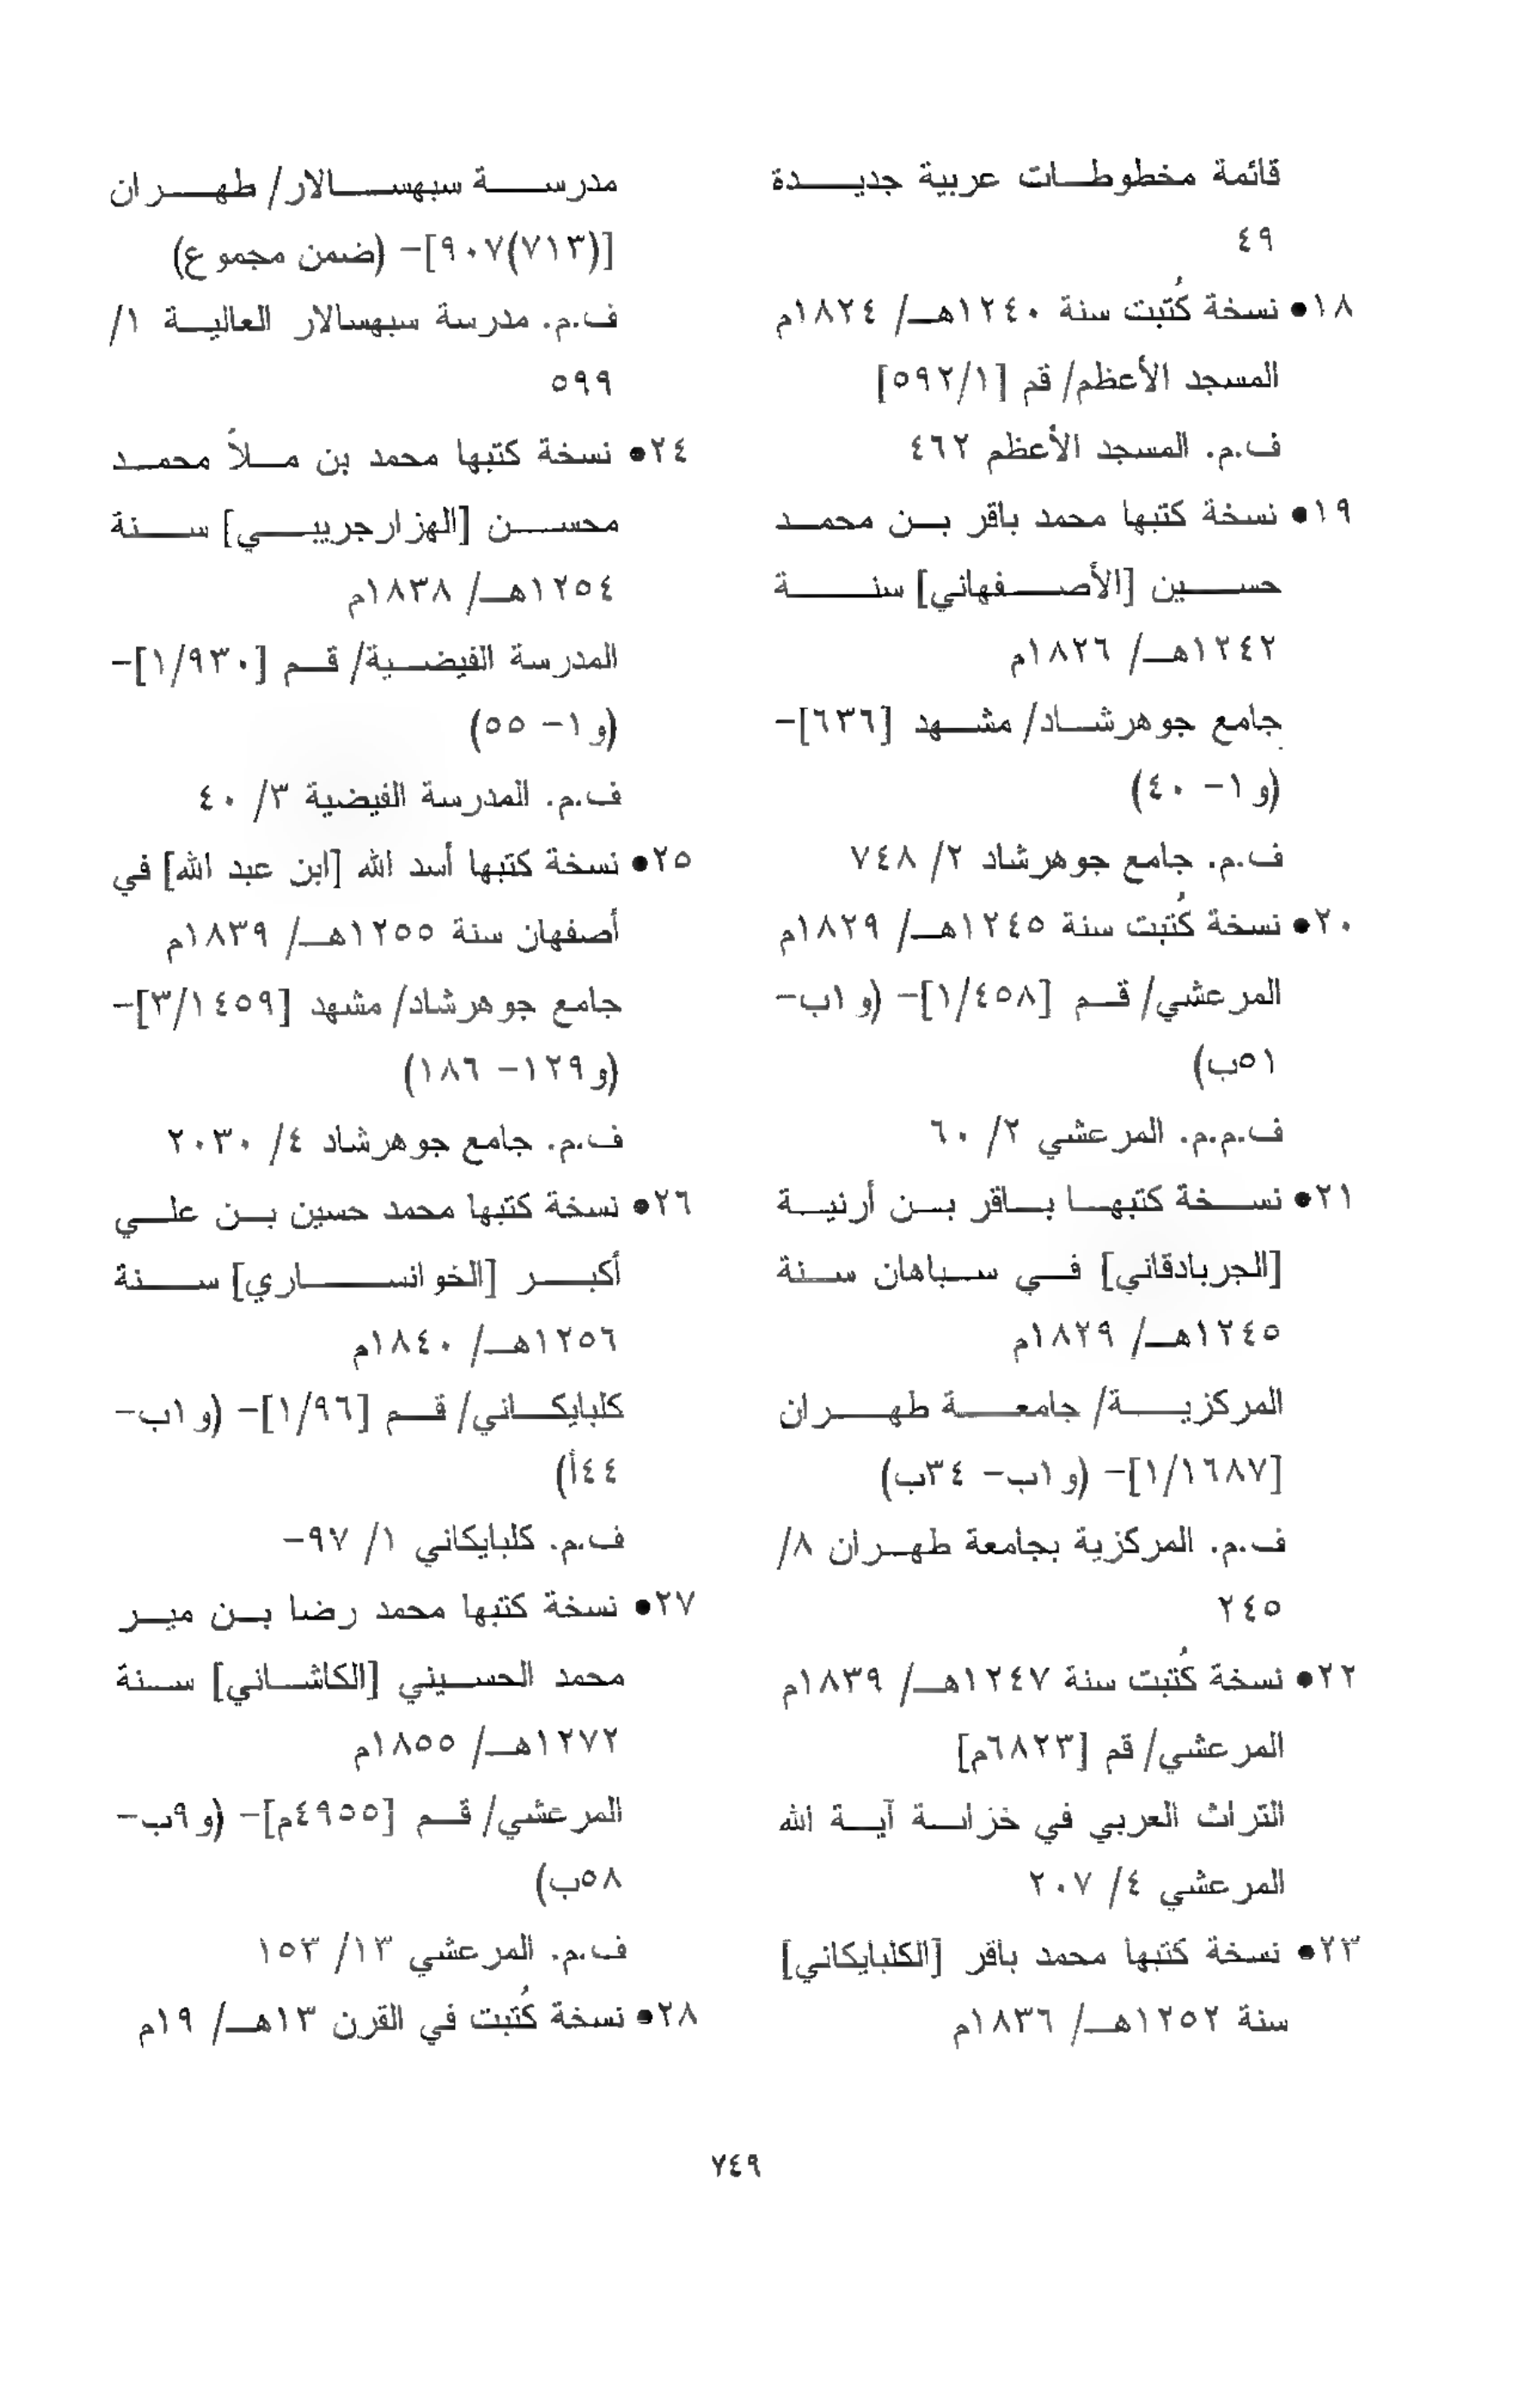 قائمة مخطوطات عربية جديدة
٤٩
١٨• نسخة كُتبت سنة ١٢٤٠هـ/ ١٨٢٤م
المسجد الأعظم/ قم [٥٩٢/١]
ف.م. المسجد الأعظم ٤٦٢
١٩• نسخة كتبها محمد باقر بن محمد
حسين [الأصفهاني] سنة
١٢٤٢هـ/ ١٨٢٦م
جامع جوهرشاد/ مشهد [٦٣٦]-
(و١- ٤٠)
ف.م. جامع جوهرشاد ٢/ ٧٤٨
٢٠• نسخة كُتبت سنة ١٢٤٥هـ/ ١٨٢٩م
المرعشي/ قم [١/٤٥٨]- (و١ب-
٥١ب)
ف.م.م. المرعشي ٢/ ٦٠
٢١• نسخة كتبها باقر بن أرنية
[الجربادقاني] في سباهان سنة
١٢٤٥هـ/ ١٨٢٩م
المركزية/ جامعة طهران
[١/١٦٨٧]- (و١ب- ٣٤ب)
ف.م. المركزية بجامعة طهران ٨/
٢٤٥
٢٢• نسخة كُتبت سنة ١٢٤٧هـ/ ١٨٣٩م
المرعشي/ قم [٦٨٢٣م]
التراث العربي في خزانة آية الله
المرعشي ٤/ ٢٠٧
٢٣• نسخة كتبها محمد باقر [الكلبايكاني]
سنة ١٢٥٢هـ/ ١٨٣٦م
مدرسة سبهسالار/ طهران
[(٧١٣)٩٠٧]- (ضمن مجموع)
ف.م. مدرسة سبهسالار العالية ١/
٥٩٩
٢٤• نسخة كتبها محمد بن ملاّ محمد
محسن [الهزارجريبي] سنة
١٢٥٤هـ/ ١٨٣٨م
المدرسة الفيضية/ قم [١/٩٣٠]-
(و١- ٥٥)
ف.م. المدرسة الفيضية ٣/ ٤٠
٢٥• نسخة كتبها أسد الله [ابن عبد الله] في
أصفهان سنة ١٢٥٥هـ/ ١٨٣٩م
جامع جوهرشاد/ مشهد [٣/١٤٥٩]-
(و١٢٩- ١٨٦)
ف.م. جامع جوهرشاد ٤/ ٢٠٣٠
٢٦• نسخة كتبها محمد حسين بن علي
أكبر [الخوانساري] سنة
١٢٥٦هـ/ ١٨٤٠م
كلبايكاني/ قم [١/٩٦]- (و١ب-
٤٤أ)
ف.م. كلبايكاني ١/ ٩٧-
٢٧• نسخة كتبها محمد رضا بن مير
محمد الحسيني [الكاشاني] سنة
١٢٧٢هـ/ ١٨٥٥م
المرعشي/ قم [٤٩٥٥م]- (و٩ب-
٥٨ب)
ف.م. المرعشي ١٣/ ١٥٣
٢٨• نسخة كُتبت في القرن ١٣هـ/ ١٩م
٧٤٩